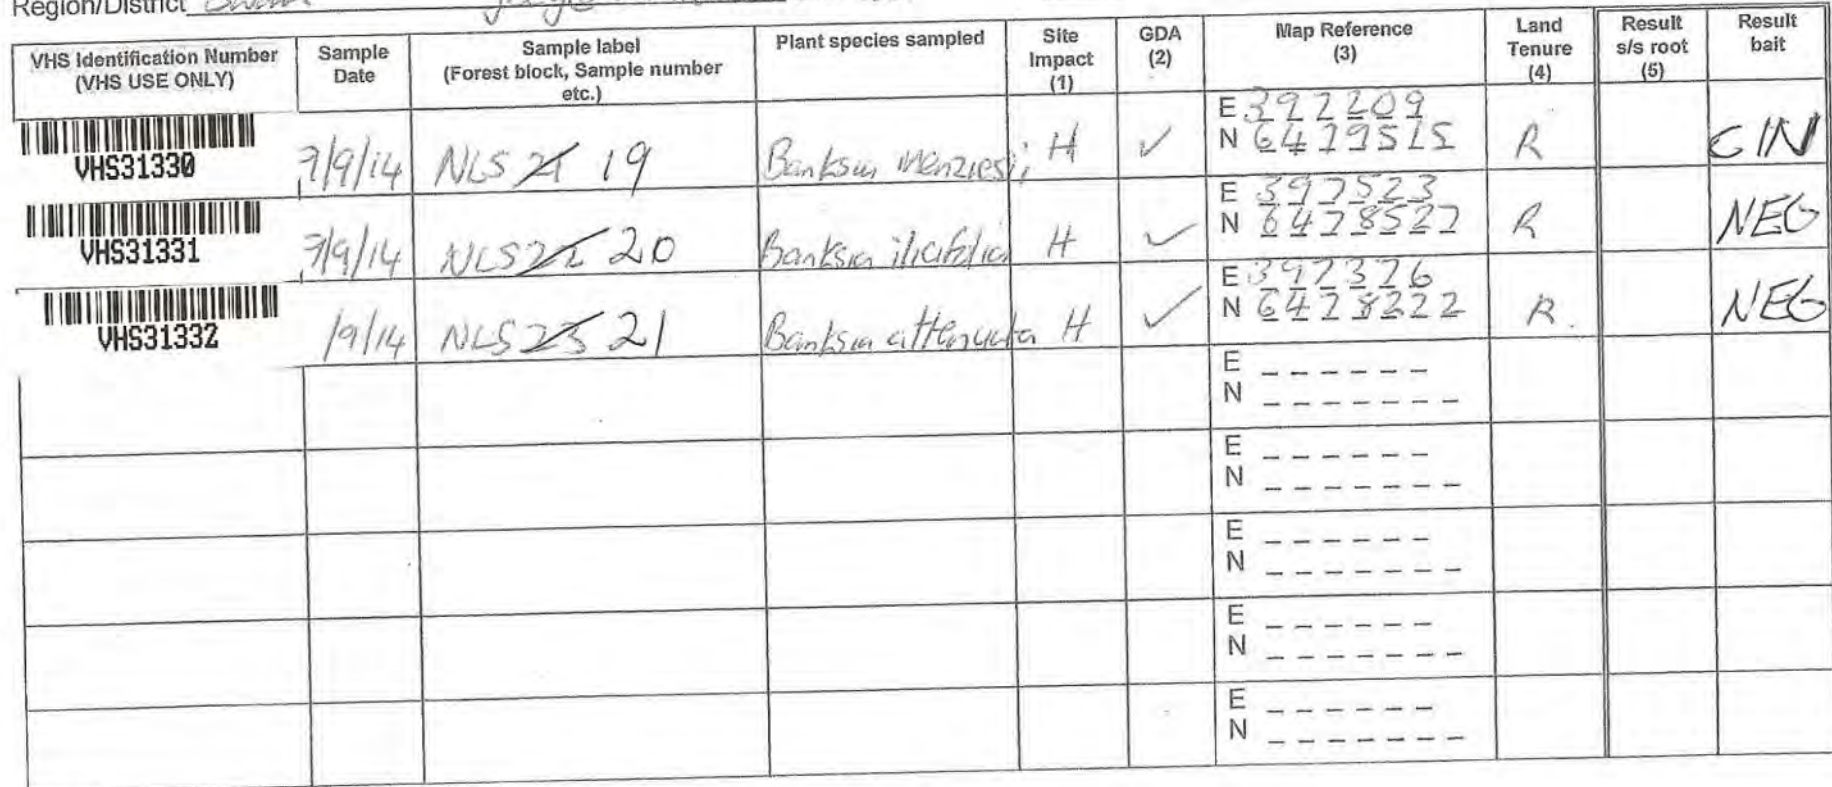 Region/District
VHS Identification Number (VHS USE ONLY) Sample Date Sample label (Forest block, Sample number etc.) Plant species sampled Site Impact (1) GDA (2) Map Reference (3) Land Tenure (4) Result s/s root (5) Result bait
VHS31330 9/14 NLS 19 Banksia Menziesii H ✓ E 392209 R CIN
N 6479515
VHS31331 9/14 NLS 22 20 Banksia ilicifolia H ✓ E 397523 R NEG
N 6478527
VHS31332 /9/14 NLS 23 21 Banksia attenuata H ✓ E 392376 R. NEG
N 6478222
E _ _ _ _ _ _
N _ _ _ _ _ _ _
E _ _ _ _ _ _
N _ _ _ _ _ _ _
E _ _ _ _ _ _
N _ _ _ _ _ _ _
E _ _ _ _ _ _
N _ _ _ _ _ _ _
E _ _ _ _ _ _
N _ _ _ _ _ _ _